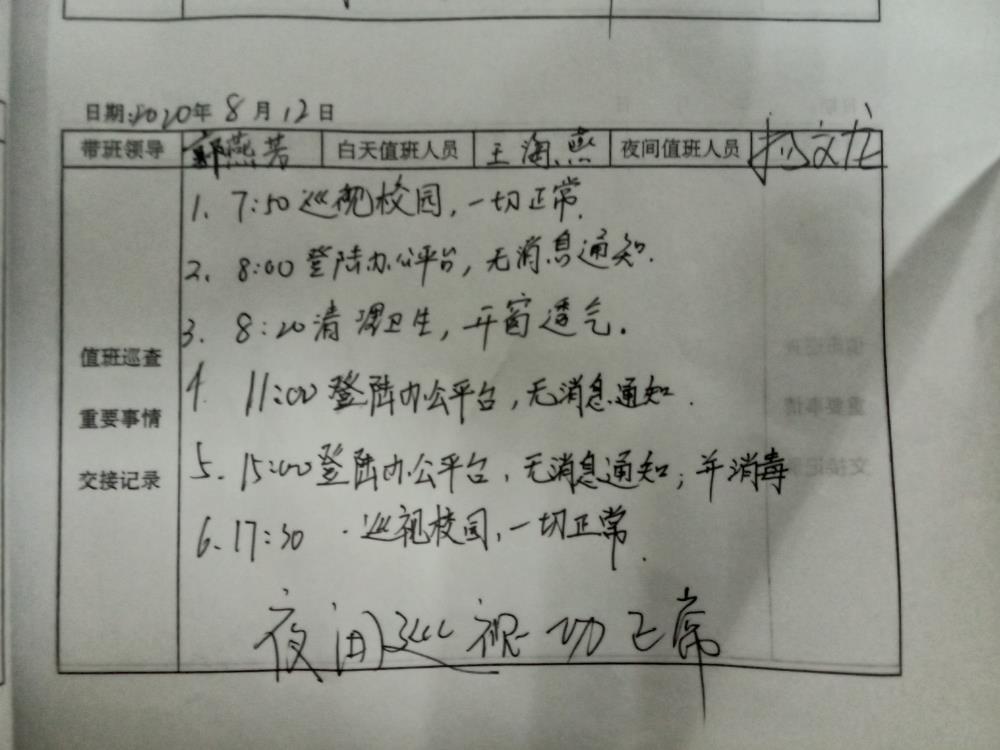 日期:2020年8月12日
带班领导 郭燕芳 白天值班人员 王海燕 夜间值班人员 文龙
1. 7:50巡视校园,一切正常.
2. 8:00登陆办公平台,无消息通知.
3. 8:20清理卫生,开窗透气.
值班巡查
4. 11:00登陆办公平台,无消息通知.
重要事情
5. 15:00登陆办公平台,无消息通知;并消毒
交接记录
6. 17:30 .巡视校园,一切正常.
夜间巡视一切正常